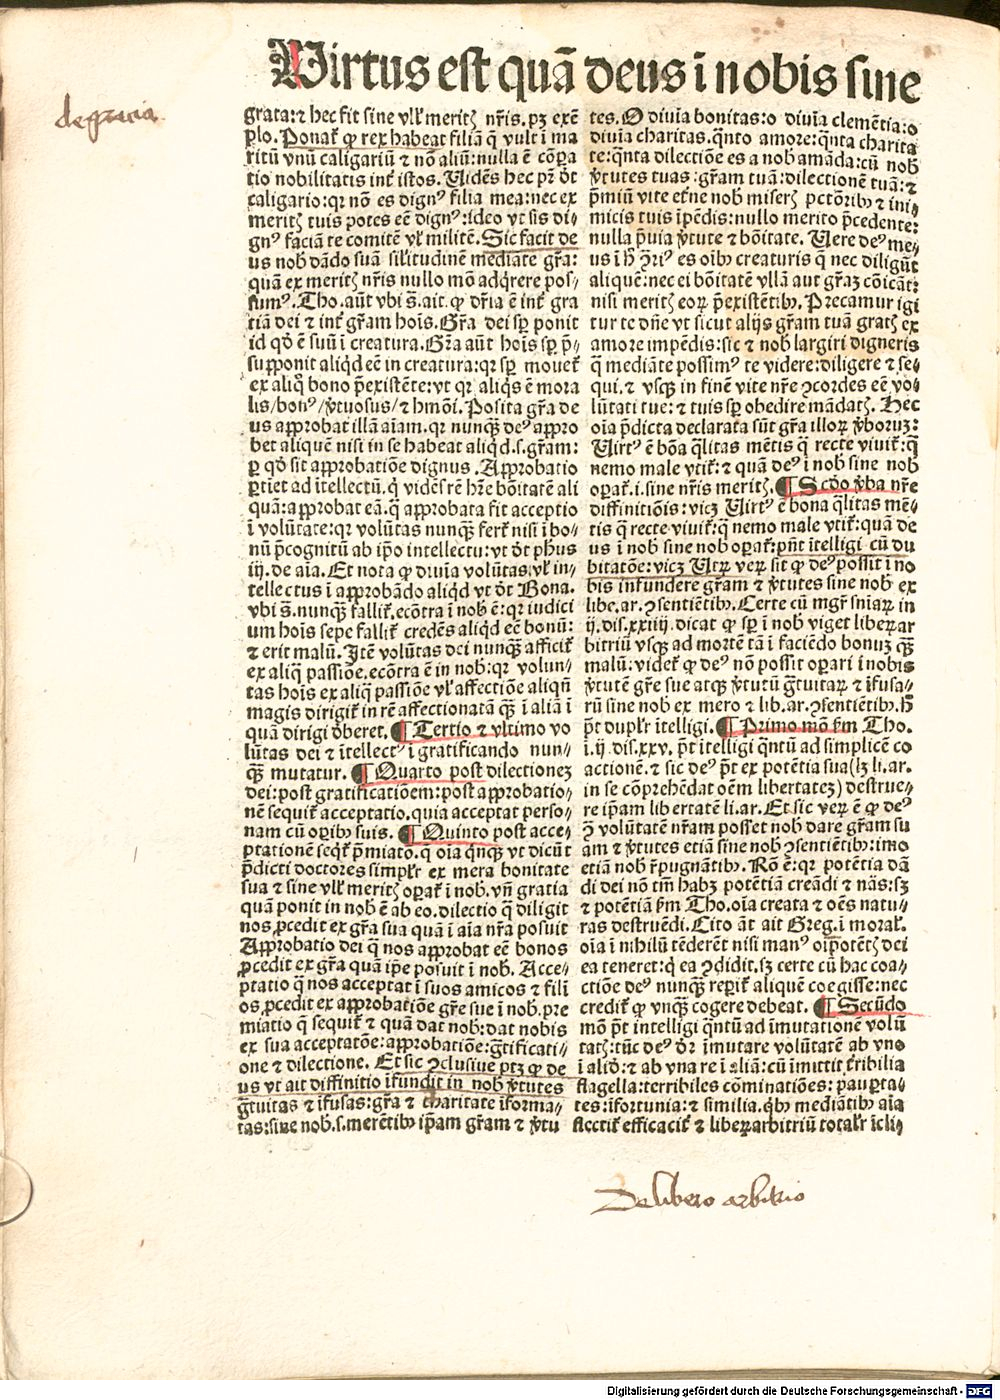 Virtus est quã deus ĩ nobis sine
de gracia
grata: ⁊ hec fit sine vlľ meritꝭ nr̃is. pꝫ exẽ
plo. Ponať ꝙ rex habeat filiã q̃ vult ĩ ma
ritũ vnũ caligariũ ⁊ nõ aliũ: nulla ẽ cõꝑa
tio nobilitatis int̃ istos. Vidẽs hec pr̃ ðt
caligario: qꝛ nõ es dignꝰ filia mea: nec ex
meritꝭ tuis potes eẽ dignꝰ: ideo vt sis di⸗
gnꝰ faciã te comitẽ vľ militẽ. Sic facit de
us nob̃ dãdo suã sil̃itudinẽ mediãte gr̃a:
quã ex meritꝭ nr̃is nullo mõ adq̃rere pos⸗
sumꝰ. Tho. aũt vbi s̃. ait. ꝙ dr̃ia ẽ int̃ gra
tiã dei ⁊ int̃ gr̃am hoĩs. Gr̃a dei sꝑ ponit
id qð ẽ suũ ĩ creatura. Gr̃a aũt hoĩs sꝑ p̃⸗
supponit aliqd eẽ in creatura: qꝛ sꝑ moueť
ex aliq̃ bono p̃existẽte: vt qꝛ aliq̃s ẽ mora
lis/bonꝰ/ṽtuosus/⁊ hmõi. Posita gr̃a de
us approbat illã aĩam. qꝛ nunqꝫ deꝰ appro
bet aliquẽ nisi in se habeat aliqd. s. gr̃am:
ꝑ qð sit approbatiõe dignus. Approbatio
ꝑtiet ad ĩtellectũ. q̃ vidẽs rẽ hr̃e bõitatẽ ali
quã: approbat eã. q̃ approbata fit acceptio
ĩ volũtate: qꝛ volũtas nunqꝫ ferť nisi ĩ bo⸗
nũ p̃cognitũ ab ip̃o intellectu: vt ðt phꝰus
iij. de aĩa. Et nota ꝙ diuĩa volũtas, vľ in⸗
tellectus ĩ approbãdo aliqd vt ðt Bona.
vbi s̃. nunqꝫ falliť. ecõtra ĩ nob̃ ẽ: qꝛ iudici
um hoĩs sepe falliť credẽs aliqd eẽ bonũ:
⁊ erit malũ. Itẽ volũtas dei nunqꝫ afficiť
ex aliq̃ passiõe. ecõtra ẽ in nob̃: qꝛ volun⸗
tas hoĩs ex aliq̃ passiõe vľ affectiõe aliqñ
magis dirigiť in rẽ affectionatã qꝫ ĩ aliã ĩ
quã dirigi ðberet. ¶ Tertio ⁊ vltimo vo
lũtas dei ⁊ ĩtellectꝰ ĩ gratificando nun⸗
qꝫ mutatur. ¶ Quarto post dilectionez
dei: post gratificatiõem: post approbatio⸗
nẽ sequiť acceptatio. quia acceptat perso⸗
nam cũ oꝑibꝰ suis. ¶ Quinto post acce⸗
ptationẽ seqť p̃miatio. q̃ oĩa q̃nqꝫ vt dicũt
p̃dicti doctores simpľr ex mera bonitate
sua ⁊ sine vlľ meritꝭ oꝑať ĩ nob̃. vñ gratia
quã ponit in nob̃ ẽ ab eo. dilectio q̃ diligit
nos, ꝓcedit ex gr̃a sua quã ĩ aĩa nr̃a posuit
Approbatio dei q̃ nos approbat eẽ bonos
ꝓcedit ex gr̃a quã ip̃e posuit ĩ nob̃. Acce⸗
ptatio q̃ nos acceptat ĩ suos amicos ⁊ fili
os, ꝓcedit ex approbatiõe gr̃e sue ĩ nob̃. pre
miatio q̃ sequiť ⁊ quã dat nob̃: dat nobis
ex sua acceptatõe: approbatiõe: g̃tificati⸗
one ⁊ dilectione. Et sic ꝯclusiue ptꝫ ꝙ de
us vt ait diffinitio ĩfundit in nob̃ ṽtutes
g̃tuitas ⁊ ĩfusas: gr̃a ⁊ charitate ĩforma⸗
tas: sine nob̃. s. merẽtibꝰ ip̃am gr̃am ⁊ ṽtu
tes. O diuĩa bonitas: o diuĩa clemẽtia: o
diuĩa charitas. q̃nto amore: q̃nta charita
te: q̃nta dilectiõe es a nob̃ amãda: cũ nob̃
ṽtutes tuas: gr̃am tuã: dilectionẽ tuã: ⁊
p̃miũ vite et̃ne nob̃ miserꝭ pctõribꝰ ⁊ ini⸗
micis tuis ĩpẽdis: nullo merito p̃cedente:
nulla p̃uia ṽtute ⁊ bõitate. Vere deꝰ me⸗
us ĩ h̃ ꝯ̃riꝰ es oĩbꝰ creaturis q̃ nec diligũt
aliquẽ: nec ei bõitatẽ vllã aut gr̃aꝫ cõicãt:
nisi meritꝭ eoꝝ p̃existẽtibꝰ. Precamur igi
tur te dñe vt sicut alijs gr̃am tuã gratꝭ ex
amore impẽdis: sic ⁊ nob̃ largiri digneris
q̃ mediãte possimꝰ te videre: diligere ⁊ se⸗
qui. ⁊ vsqꝫ in finẽ vite nr̃e ꝯcordes eẽ vo⸗
lũtati tue: ⁊ tuis sꝑ obedire mãdatꝭ. Hec
oĩa p̃dicta declarata sũt gr̃a illoꝝ ṽboruꝫ:
Virtꝰ ẽ bõa q̃litas mẽtis q̃ recte viuiť: q̃
nemo male vtiť: ⁊ quã deꝰ ĩ nob̃ sine nob̃
oꝑať. i. sine nr̃is meritꝭ. ¶ Scðo ṽba nr̃e
diffinitiõis: vicꝫ Virtꝰ ẽ bona q̃litas mẽ⸗
tis q̃ recte viuiť: q̃ nemo male vtiť: quã de
us ĩ nob̃ sine nob̃ oꝑať: pñt ĩtelligi cũ du
bitatõe: vicꝫ Vtꝝ veꝝ sit ꝙ deꝰ possit ĩ no
bis infundere gr̃am ⁊ ṽtutes sine nob̃ ex
libe. ar. ꝯsentiẽtibꝰ. Certe cũ mgr̃ sñiaꝝ in
ij. dis. xxiiij. dicat ꝙ sꝑ ĩ nob̃ viget libeꝝ ar
bitriũ vsqꝫ ad mortẽ tã ĩ faciẽdo bonuꝫ qꝫ
malũ: videť ꝙ deꝰ nõ possit oꝑari ĩ nobis
ṽtutẽ gr̃e sue atqꝫ ṽtutũ g̃tuitaꝝ ⁊ ĩfusa⸗
rũ sine nob̃ ex mero ⁊ lib. ar. ꝯsentiẽtibꝰ. h̃
p̃t dupľr ĩtelligi. ¶ Primo mõ ẜm Tho.
i. ij. dis. xxv. p̃t ĩtelligi q̃ntũ ad simplicẽ co
actionẽ. ⁊ sic deꝰ p̃t ex potẽtia sua (lꝫ li. ar.
in se cõprehẽdat oẽm libertatez) destrue⸗
re ip̃am libertatẽ li. ar. Et sic veꝝ ẽ ꝙ deꝰ
ꝯ̃ volũtatẽ nr̃am posset nob̃ dare gr̃am su
am ⁊ ṽtutes etiã sine nob̃ ꝯsentiẽtibꝰ: imo
etiã nob̃ r̃pugnãtibꝰ. Rõ ẽ: qꝛ potẽtia dã
di dei nõ tm̃ habꝫ potẽtiã creãdi ⁊ nãs: sꝫ
⁊ potẽtiã ẜm Tho. oĩa creata ⁊ oẽs natu⸗
ras destruẽdi. Cito ãt ait Greg. ĩ moraľ.
oĩa ĩ nihilũ tẽderẽt nisi manꝰ oĩpotẽtꝭ dei
ea teneret: q̃ ea ꝯdidit. sꝫ certe cũ hac coa⸗
ctiõe deꝰ nunqꝫ reꝑiť aliquẽ coegisse: nec
crediť ꝙ vnqꝫ cogere debeat. ¶ Secũdo
mõ p̃t intelligi q̃ntũ ad ĩmutationẽ volũ
tatꝭ: tũc deꝰ ðr ĩmutare volũtatẽ ab vno
ĩ aliõ: ⁊ ab vna re ĩ aliã: cũ ĩmittit t̃ribilia
flagella: terribiles cõminatiões: pauꝑta⸗
tes: ĩfortunia: ⁊ similia. q̃bꝰ mediãtibꝰ aĩa
flectiť efficaciť ⁊ libeꝝ arbitriũ totaľr ĩcli⸗
De libero arbitrio
Digitalisierung gefördert durch die Deutsche Forschungsgemeinschaft - DFG